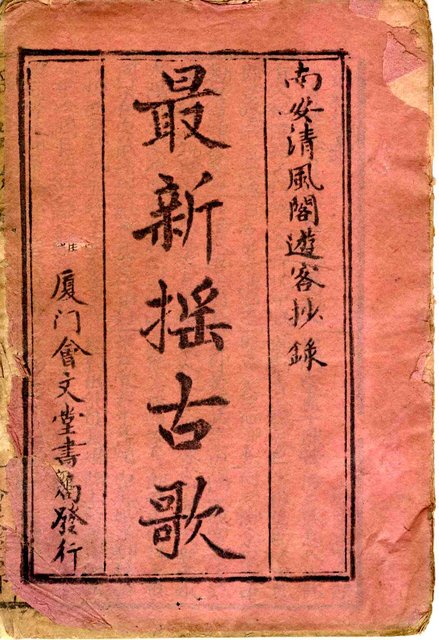 南安清風閣遊客抄錄
最新搖古歌
厦门會文堂書局發行